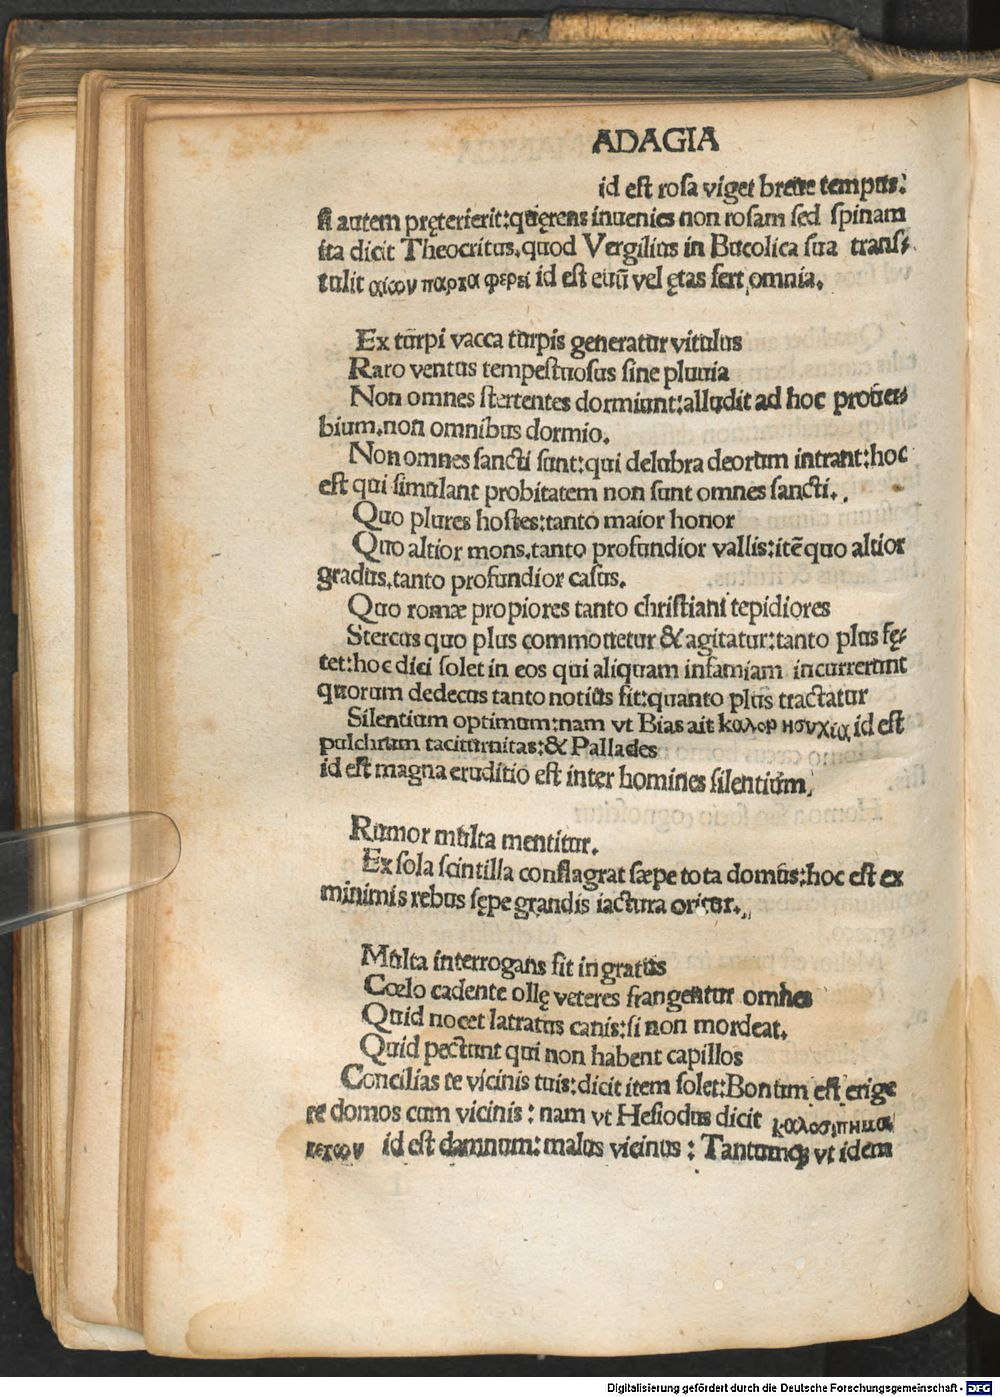 ADAGIA
id est rosa viget breue tempus:
si autem pręterierit:quęrens inuenies non rosam sed spinam
ita dicit Theocritus.quod Vergilius in Bucolica sua trans-
tulit αίων παρτα φερει id est euũ vel ętas fert omnia.
Ex turpi vacca turpis generatur vitulus
Raro ventus tempestuosus sine pluuia
Non omnes stertentes dormiunt:alludit ad hoc prouer-
bium.non omnibus dormio.
Non omnes sancti sunt:qui delubra deorum intrant:hoc
est qui simulant probitatem non sunt omnes sancti.
Quo plures hostes:tanto maior honor
Quo altior mons.tanto profundior vallis:itẽ quo altior
gradus.tanto profundior casus.
Quo romæ propiores tanto christiani tepidiores
Stercus quo plus commouetur & agitatur:tanto plus fę-
tet:hoc dici solet in eos qui aliquam infamiam incurrerunt
quorum dedecus tanto notius fit:quanto plus tractatur
Silentium optimum:nam vt Bias ait καλορ ησυχία id est
pulchrum taciturnitas:& Pallades
id est magna eruditio est inter homines silentium.
Rumor multa mentitur.
Ex sola scintilla conflagrat sæpe tota domus:hoc est ex
minimis rebus sępe grandis iactura oritur.
Multa interrogans fit ingratus
Cœlo cadente ollę veteres frangentur omnes
Quid nocet latratus canis:si non mordeat.
Quid pectunt qui non habent capillos
Concilias te vicinis tuis:dicit item solet:Bonum est erige
re domos cum vicinis: nam vt Hesiodus dicit
id est damnum: malus vicinus: Tantumq; vt idem
Digitalisierung gefördert durch die Deutsche Forschungsgemeinschaft - DFG